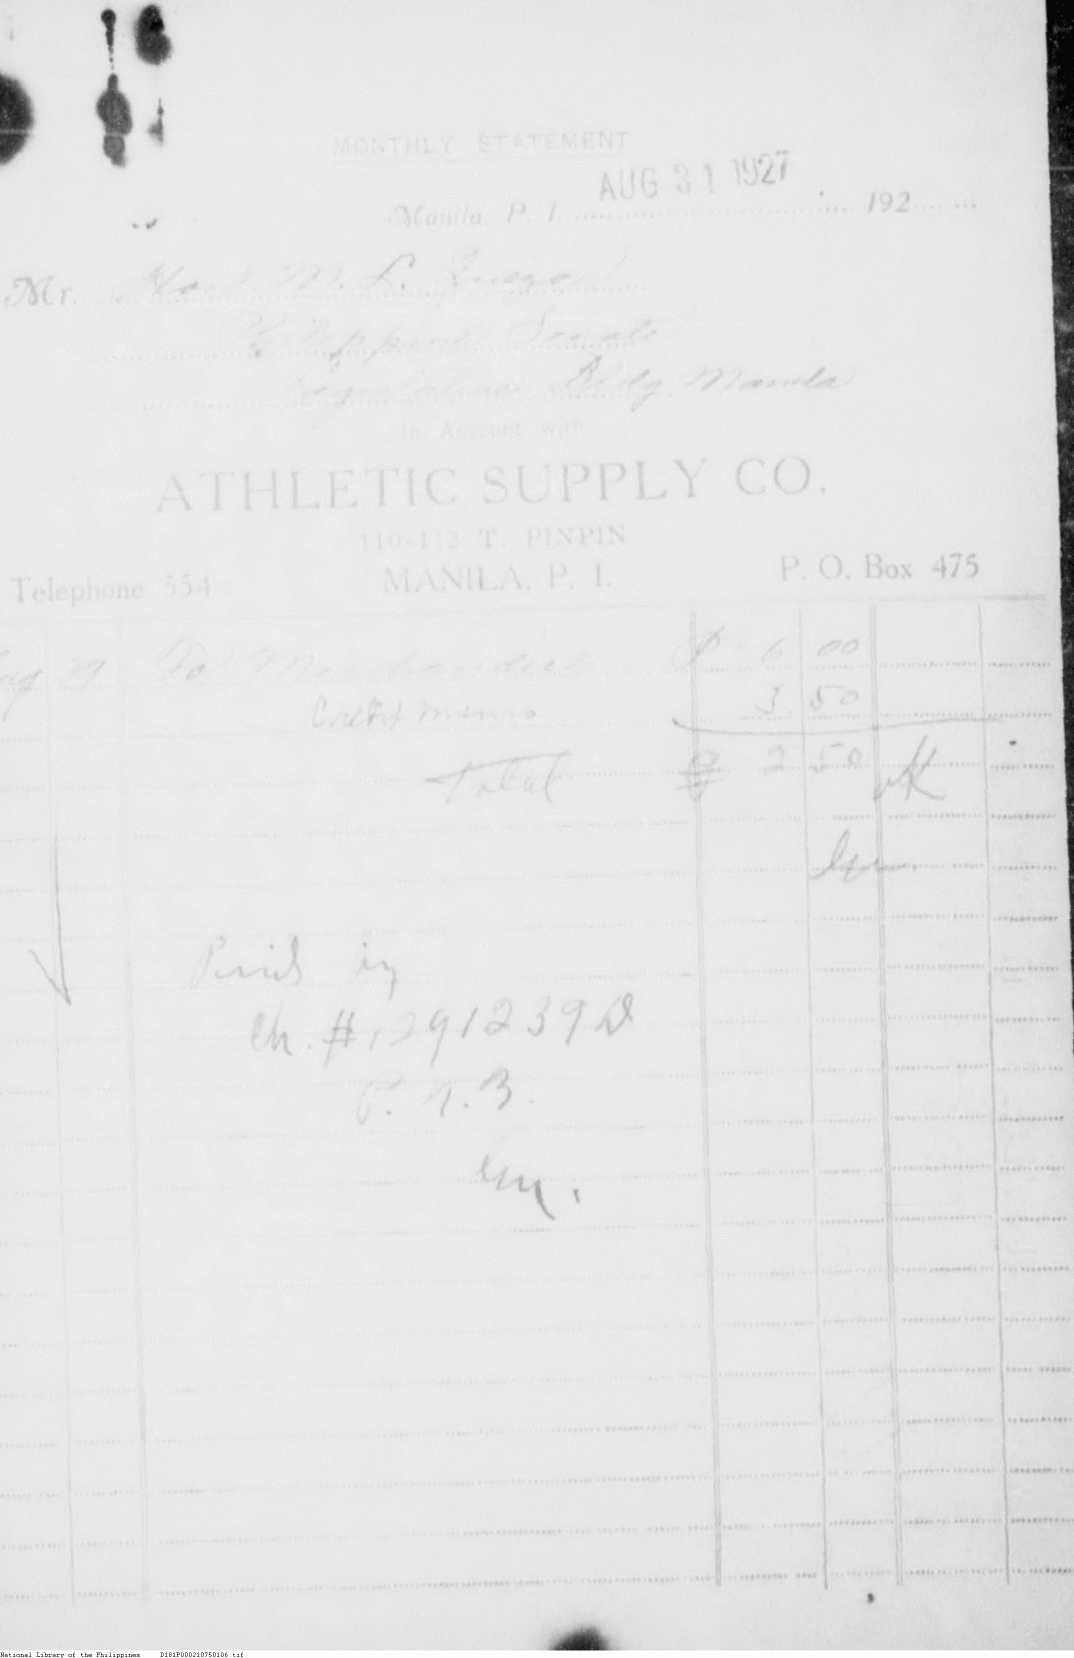 MONTHLY STATEMENT
AUG 31 1927
Manila, P. I. 192
Mr. Hon. M. L. Quezon
Philippine Senate
Legislative Bldg. Manila
In Account with
ATHLETIC SUPPLY CO.
110-112 T. PINPIN
Telephone 554 MANILA, P. I. P. O. Box 475
Aug To Merchandise ₱ 6 00
Credit memo 3 50
Total ₱ 2 50 OK
Paid by
Ch. #1291239 D
P. N. B.
National Library of the Philippines D181P000210750106.tif